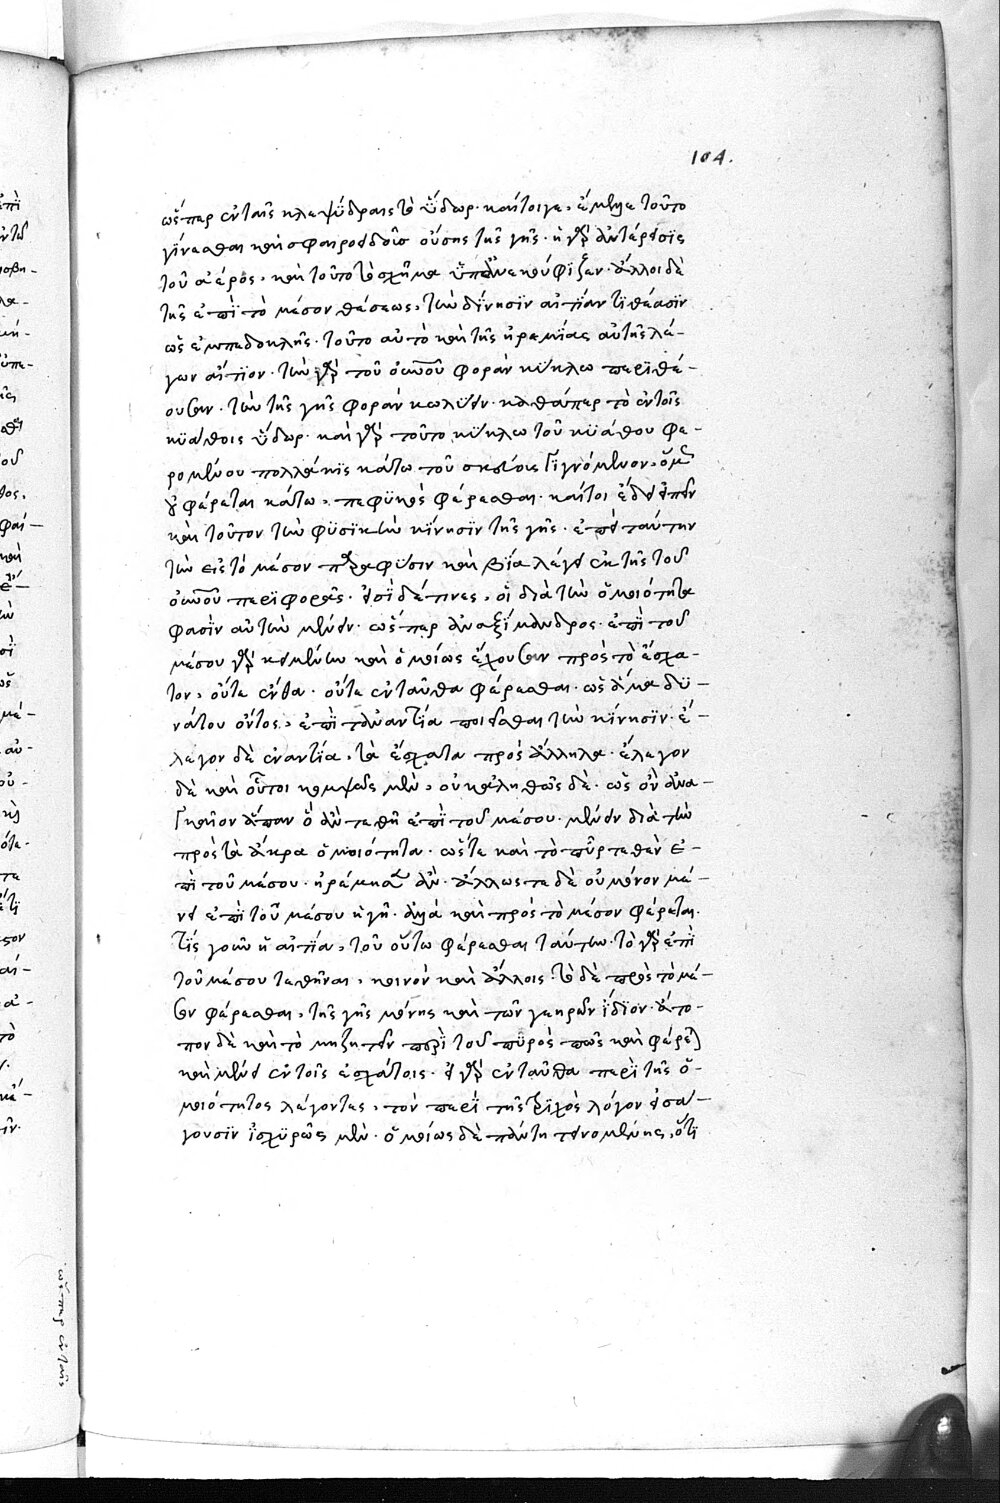 104.
ὥσπερ ἐν ταῖς κλεψύδραις τὸ ὕδωρ. καίτοιγε, ἔμελλε τοῦτο
γίνεσθαι καὶ σφαιροειδοῦς οὔσης τῆς γῆς. ἡ γὰρ ἀντέρεισις
τοῦ ἀέρος, καὶ τοῦτο τὸ σχῆμα ἂν ἐκούφιζεν. ἄλλοι δὲ
τῆς ἐπὶ τὸ μέσον θέσεως, τὴν δίνησιν αἰτίαν τιθέασιν
ὡς ἐμπεδοκλῆς. τοῦτο αὐτὸ καὶ τῆς ἠρεμίας αὐτῆς λέ-
γων αἴτιον. τὴν γὰρ τοῦ οὐνοῦ φορὰν κύκλω περιθέ-
ουσαν. τὴν τῆς γῆς φορὰν κωλύειν. καθάπερ τὸ ἐν τοῖς
κυάθοις ὕδωρ. καὶ γὰρ τοῦτο κύκλω τοῦ κυάθου φε-
ρομένου πολλάκις κάτω τοῦ σκεύους γιγνόμενον, ὅμως
οὐ φέρεται κάτω, πεφυκὸς φέρεσθαι. καίτοι ἔδει εἰπεῖν
καὶ τοῦτον τὴν φυσικὴν κίνησιν τῆς γῆς. ἐπεὶ ταύτην
τὴν εἰς τὸ μέσον παρὰ φύσιν καὶ βία λέγει ἐκ τῆς τοῦ
οὐνοῦ περιφορᾶς. εἰσὶ δέ τινες, οἳ διὰ τὴν ὁμοιότητα
φασὶν αὐτὴν μένειν. ὥσπερ ἀναξίμανδρος. ἐπὶ τοῦ
μέσου γὰρ κειμένην καὶ ὁμοίως ἔχουσαν πρὸς τὸ ἔσχα-
τον, οὔτε ἔνθα. οὔτε ἐνταῦθα φέρεσθαι. ὡς ἅμα δυ-
νάτου ὄντος, ἐπὶ τἀναντία ποιεῖσθαι τὴν κίνησιν. ἔ-
λεγον δὲ ἐναντία, τὰ ἔσχατα πρὸς ἄλληλα. ἔλεγον
δὲ καὶ οὗτοι κομψῶς μὲν, οὐκ ἀληθῶς δέ. ὡς οὖν ἀνα-
γκαῖον ἅπαν ὃ ἂν τεθῇ ἐπὶ τοῦ μέσου. μένειν διὰ τὴν
πρὸς τὰ ἄκρα ὁμοιότητα. ὥστε καὶ τὸ πῦρ τεθὲν ἐ-
πὶ τοῦ μέσου. ἠρέμησεν ἄν. ἄλλως τε δὲ οὐ μόνον μέ-
νει ἐπὶ τοῦ μέσου ἡ γῆ. ἀλλὰ καὶ πρὸς τὸ μέσον φέρεται.
τίς γοῦν ἡ αἰτία, τοῦ οὕτω φέρεσθαι ταύτην. τὸ γὰρ ἐπὶ
τοῦ μέσου τεθῆναι, κοινὸν καὶ ἄλλοις. τὸ δὲ πρὸς τὸ μέ-
σον φέρεσθαι, τῆς γῆς μόνης καὶ τῶν γεηρῶν ἴδιον. ἄτο-
πον δὲ καὶ τὸ μὴ ζητεῖν περὶ τοῦ πυρὸς πῶς καὶ φέρεται
καὶ μένει ἐν τοῖς ἐσχάτοις. εἰ γὰρ ἐνταῦθα περὶ τῆς ὁ-
μοιότητος λέγοντες, τὸν περὶ τῆς τριχὸς λόγον εἰσά-
γουσιν ἰσχυρῶς μὲν. ὁμοίως δὲ πάντη τεινομένης, ὅτι
ὥσπερ ἐν ταῖς